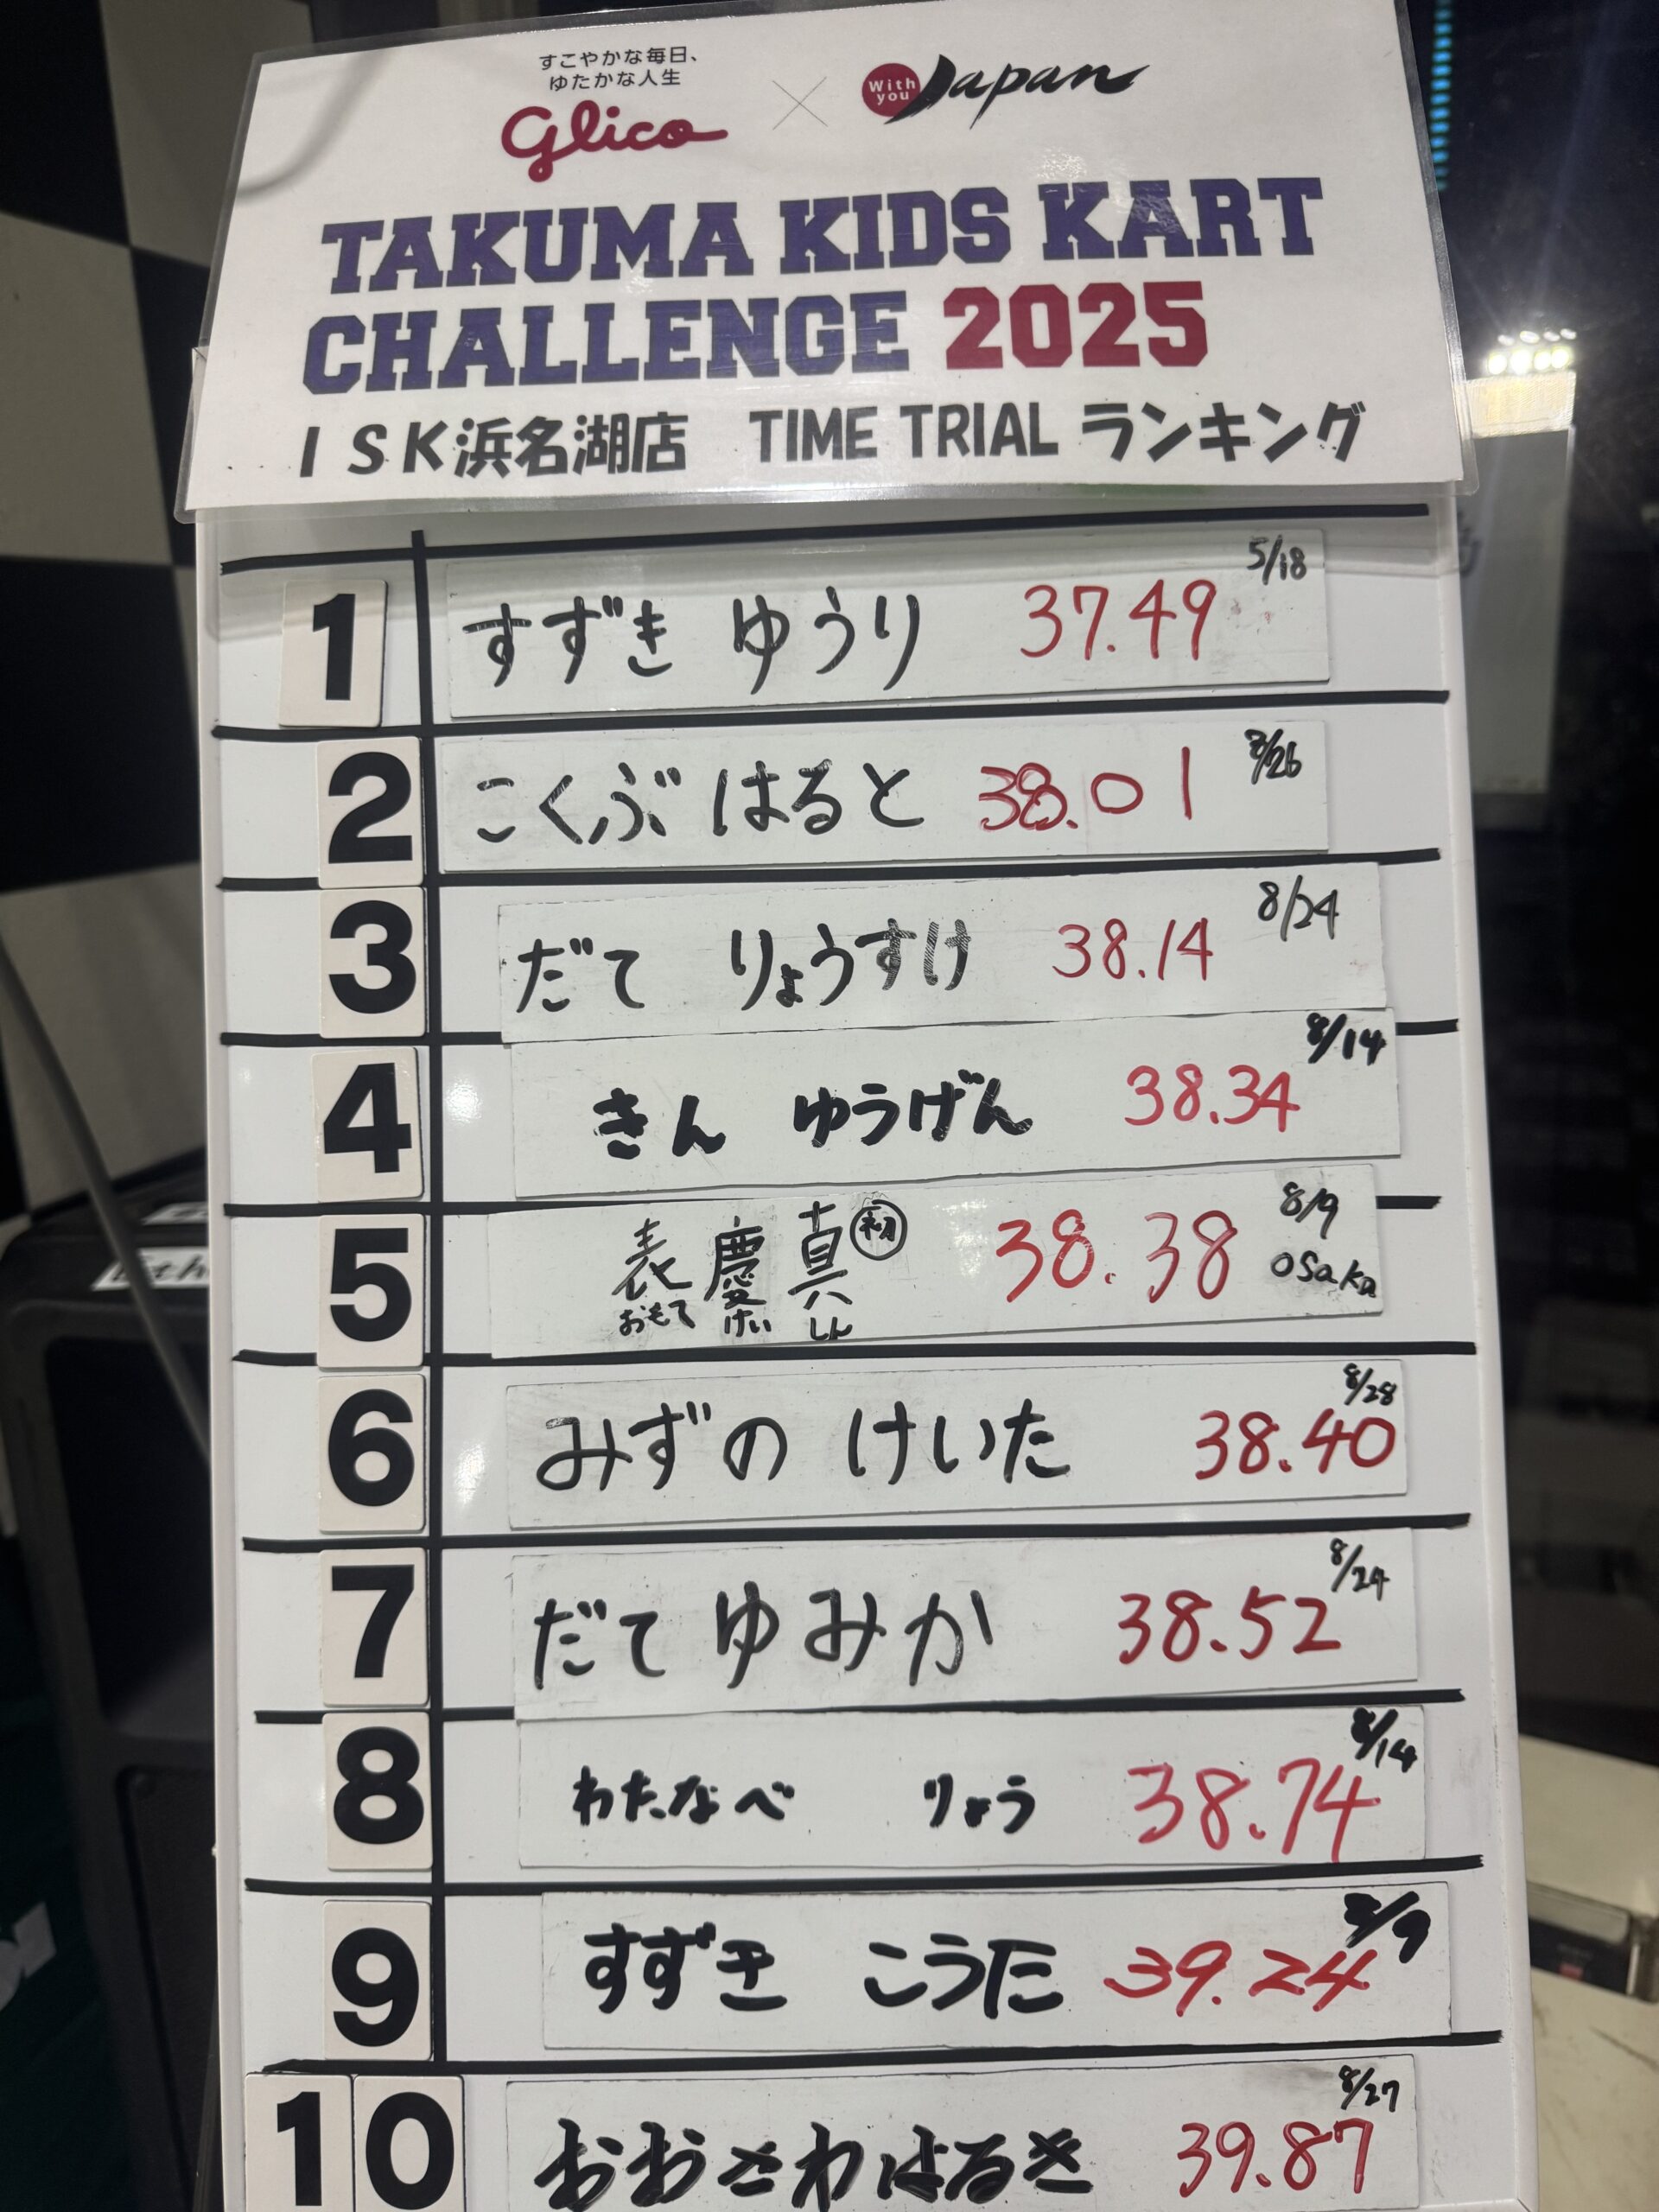 すこやかな毎日、
ゆたかな人生
Glico × With you Japan
TAKUMA KIDS KART
CHALLENGE 2025
ISK浜名湖店 TIME TRIAL ランキング
1 すずき ゆうり 37.49 5/18
2 こくぶ はると 38.01 /26
3 だて りょうすけ 38.14 8/24
4 きん ゆうげん 38.34 8/14
5 表 慶 真 初 38.38 8/9
おもて けい しん osaka
6 みずの けいた 38.40 8/28
7 だて ゆみか 38.52 8/24
8 わたなべ りょう 38.74 8/14
9 すずき こうた 39.24 /9
10 おおさわはるき 39.87 8/27